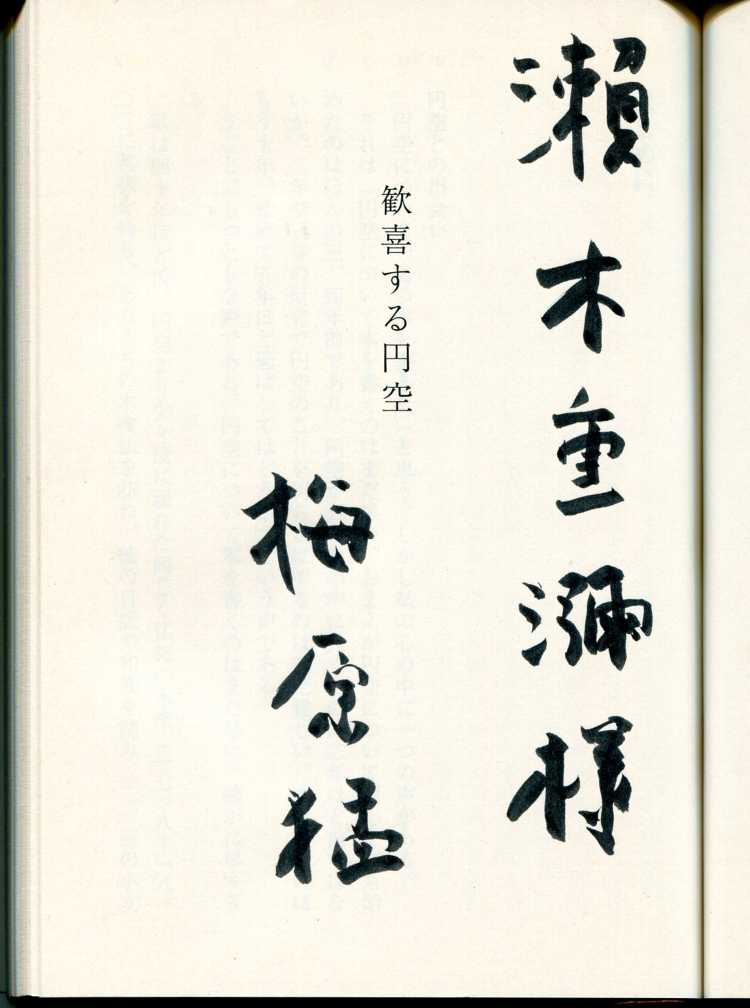 瀬木重瀰様
歓喜する円空
梅原猛